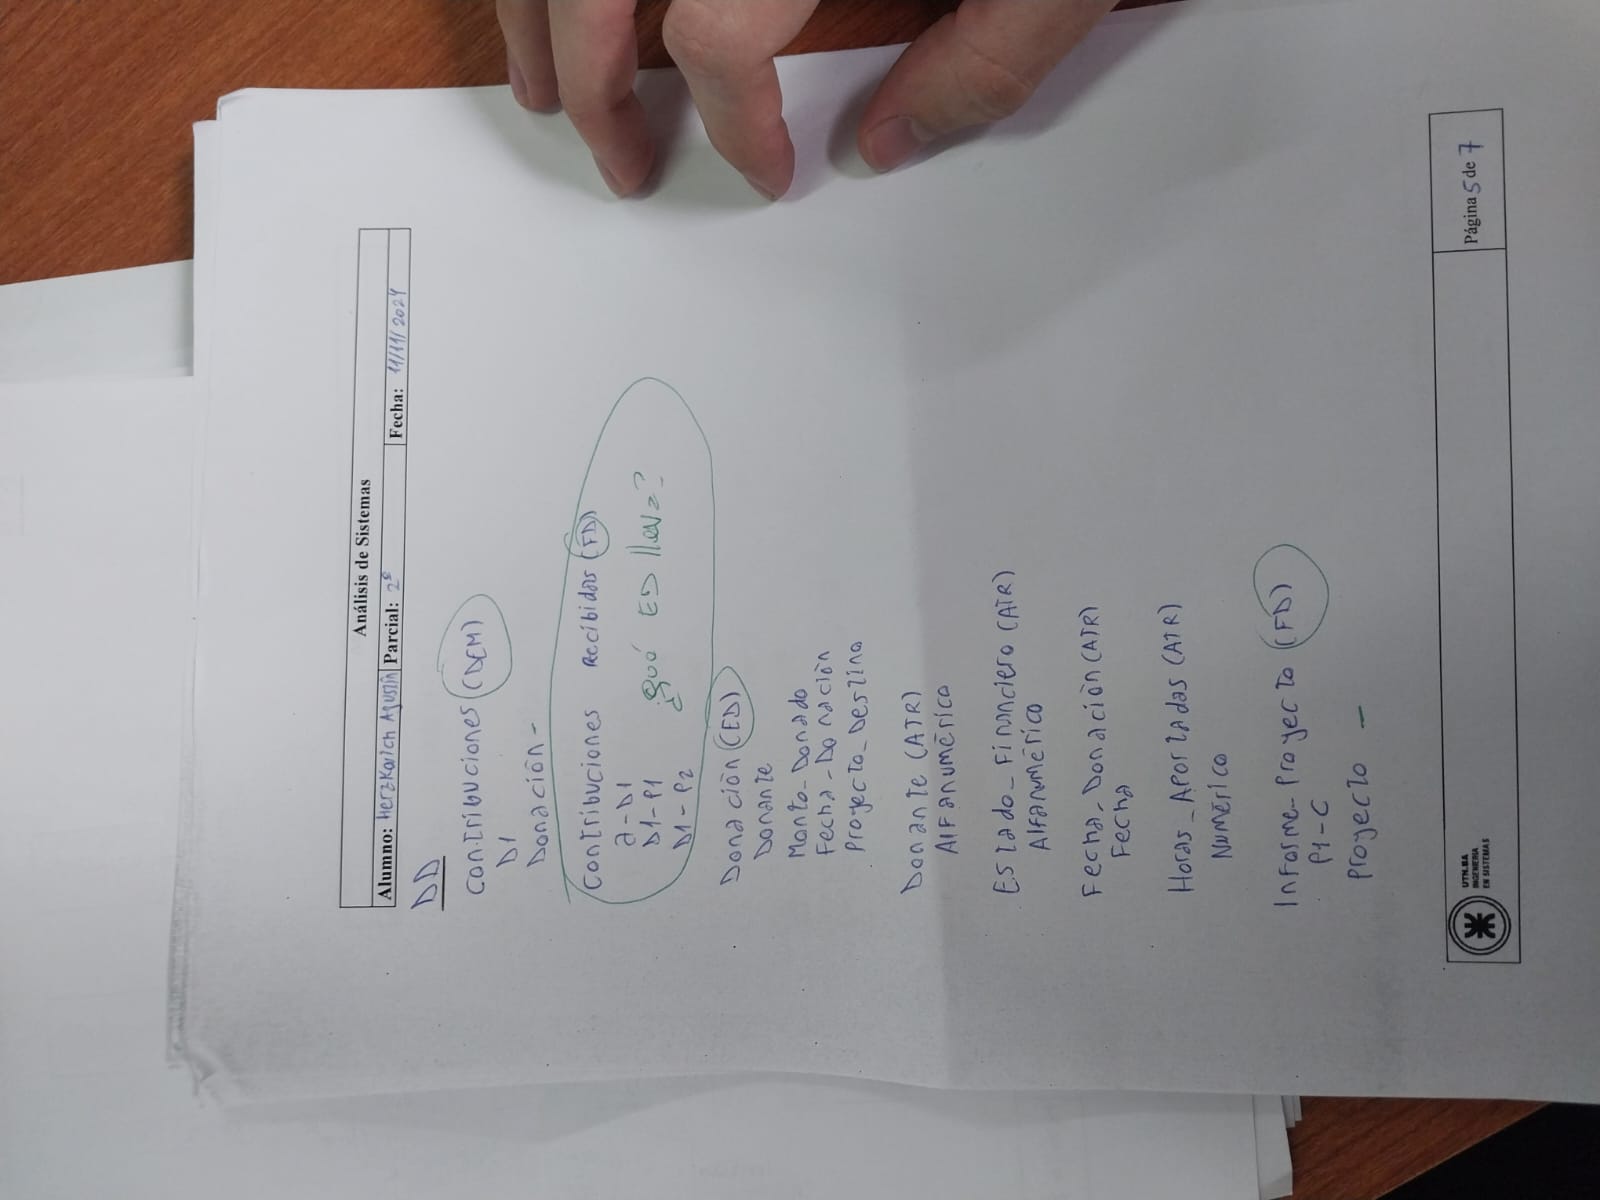 Análisis de Sistemas
Alumno: Herzkovich Agustín Parcial: 2º Fecha: 11/11/2024
DD
Contribuciones (DEM)
D1
Donación -
Contribuciones Recibidas (FD)
a - D1
D1 - P1
D1 - P2
¿Qué ED lleva?
Donación (ED)
Donante
Monto_Donado
Fecha_Donación
Proyecto_Destino
Donante (ATR)
Alfanumérico
Estado_Financiero (ATR)
Alfanumérico
Fecha_Donación (ATR)
Fecha
Horas_Aportadas (ATR)
Numérico
Informe_Proyecto (FD)
P1 - C
Proyecto -
UTN.BA
INGENIERIA
EN SISTEMAS
Página 5 de 7